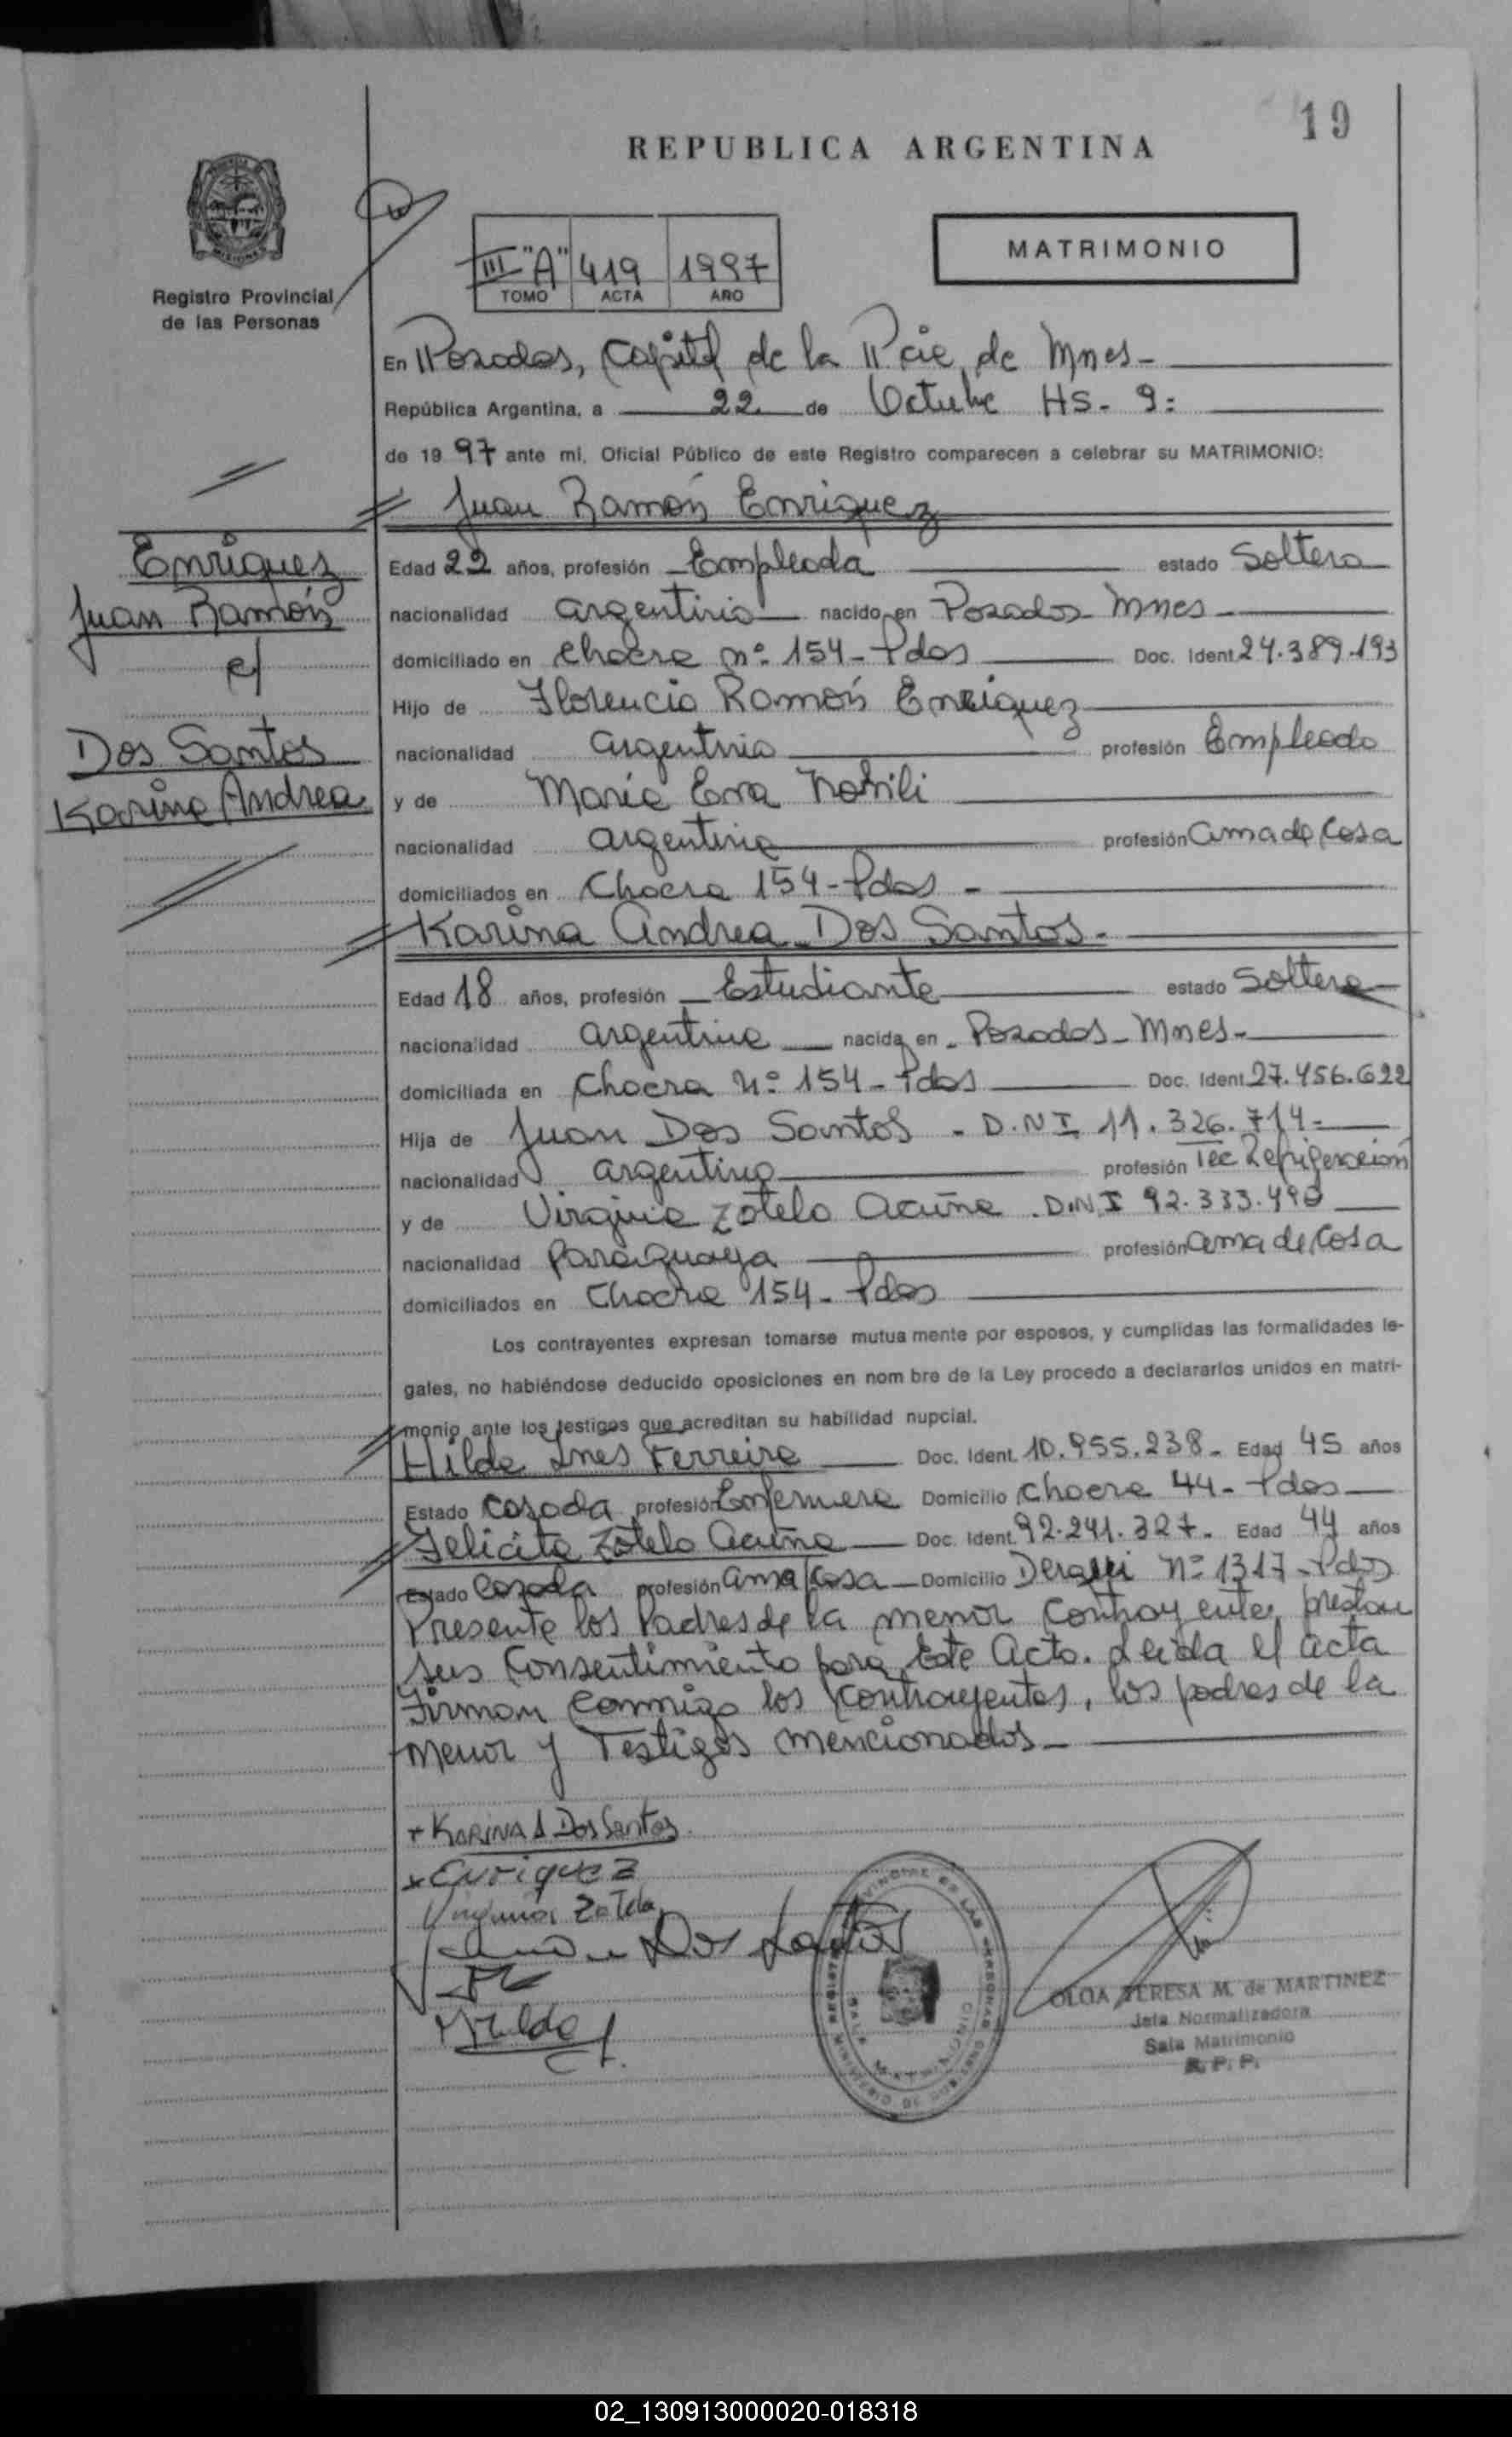 19
REPUBLICA ARGENTINA
Registro Provincial
de las Personas
III "A" 419 1997
TOMO ACTA AÑO
MATRIMONIO
En Posadas, Capital de la Pcia de Mnes-
República Argentina, a 22 de Octubre HS. 9:
de 19 97 ante mi, Oficial Público de este Registro comparecen a celebrar su MATRIMONIO:
Juan Ramón Enriquez
Enriquez
Juan Ramón
c/
Dos Santos
Karina Andrea
Edad 22 años, profesión Empleado estado Soltero
nacionalidad argentino nacido en Posadas Mnes-
domiciliado en Chacra nº 154- Pdas Doc. Ident. 24.389.193
Hijo de Florencio Ramón Enriquez
nacionalidad argentino profesión Empleado
y de María Ema
nacionalidad argentina profesión ama de Casa
domiciliados en Chacra 154- Pdas -
Karina Andrea Dos Santos-
Edad 18 años, profesión Estudiante estado Soltera
nacionalidad argentina nacida en Posadas- Mnes-
domiciliada en Chacra Nº 154- Pdas Doc. Ident. 27.456.622
Hija de Juan Dos Santos - D.N.I 11.326.714-
nacionalidad argentino profesión Tec Refrigeración
y de Virginia Zotelo Acuña. D.N.I 92.333.490
nacionalidad Paraguaya profesión ama de Casa
domiciliados en Chacra 154- Pdas
Los contrayentes expresan tomarse mutua mente por esposos, y cumplidas las formalidades le-
gales, no habiéndose deducido oposiciones en nom bre de la Ley procedo a declararlos unidos en matri-
monio ante los testigos que acreditan su habilidad nupcial.
Hilda Ines Ferreira Doc. Ident. 10.955.238- Edad 45 años
Estado Casada profesión Enfermera Domicilio Chacra 44- Pdas
Felicita Zotelo Acuña Doc. Ident. 92.241.327- Edad 44 años
Estado Casada profesión ama Casa Domicilio Derqui Nº 1317- Pdas
Presente los Padres de la menor Contrayente, prestan
sus Consentimiento para Este Acto. Leida el acta
Firman Conmigo los Contrayentes, los padres de la
menor y Testigos mencionados-
+ KARINA A Dos Santos
x Enriquez
Virginia Zotelo
Juan Dos Santos
Hilda
OLGA TERESA M. de MARTINEZ
Jefa Normalizadora
Sala Matrimonio
R. P. P.
02_130913000020-018318